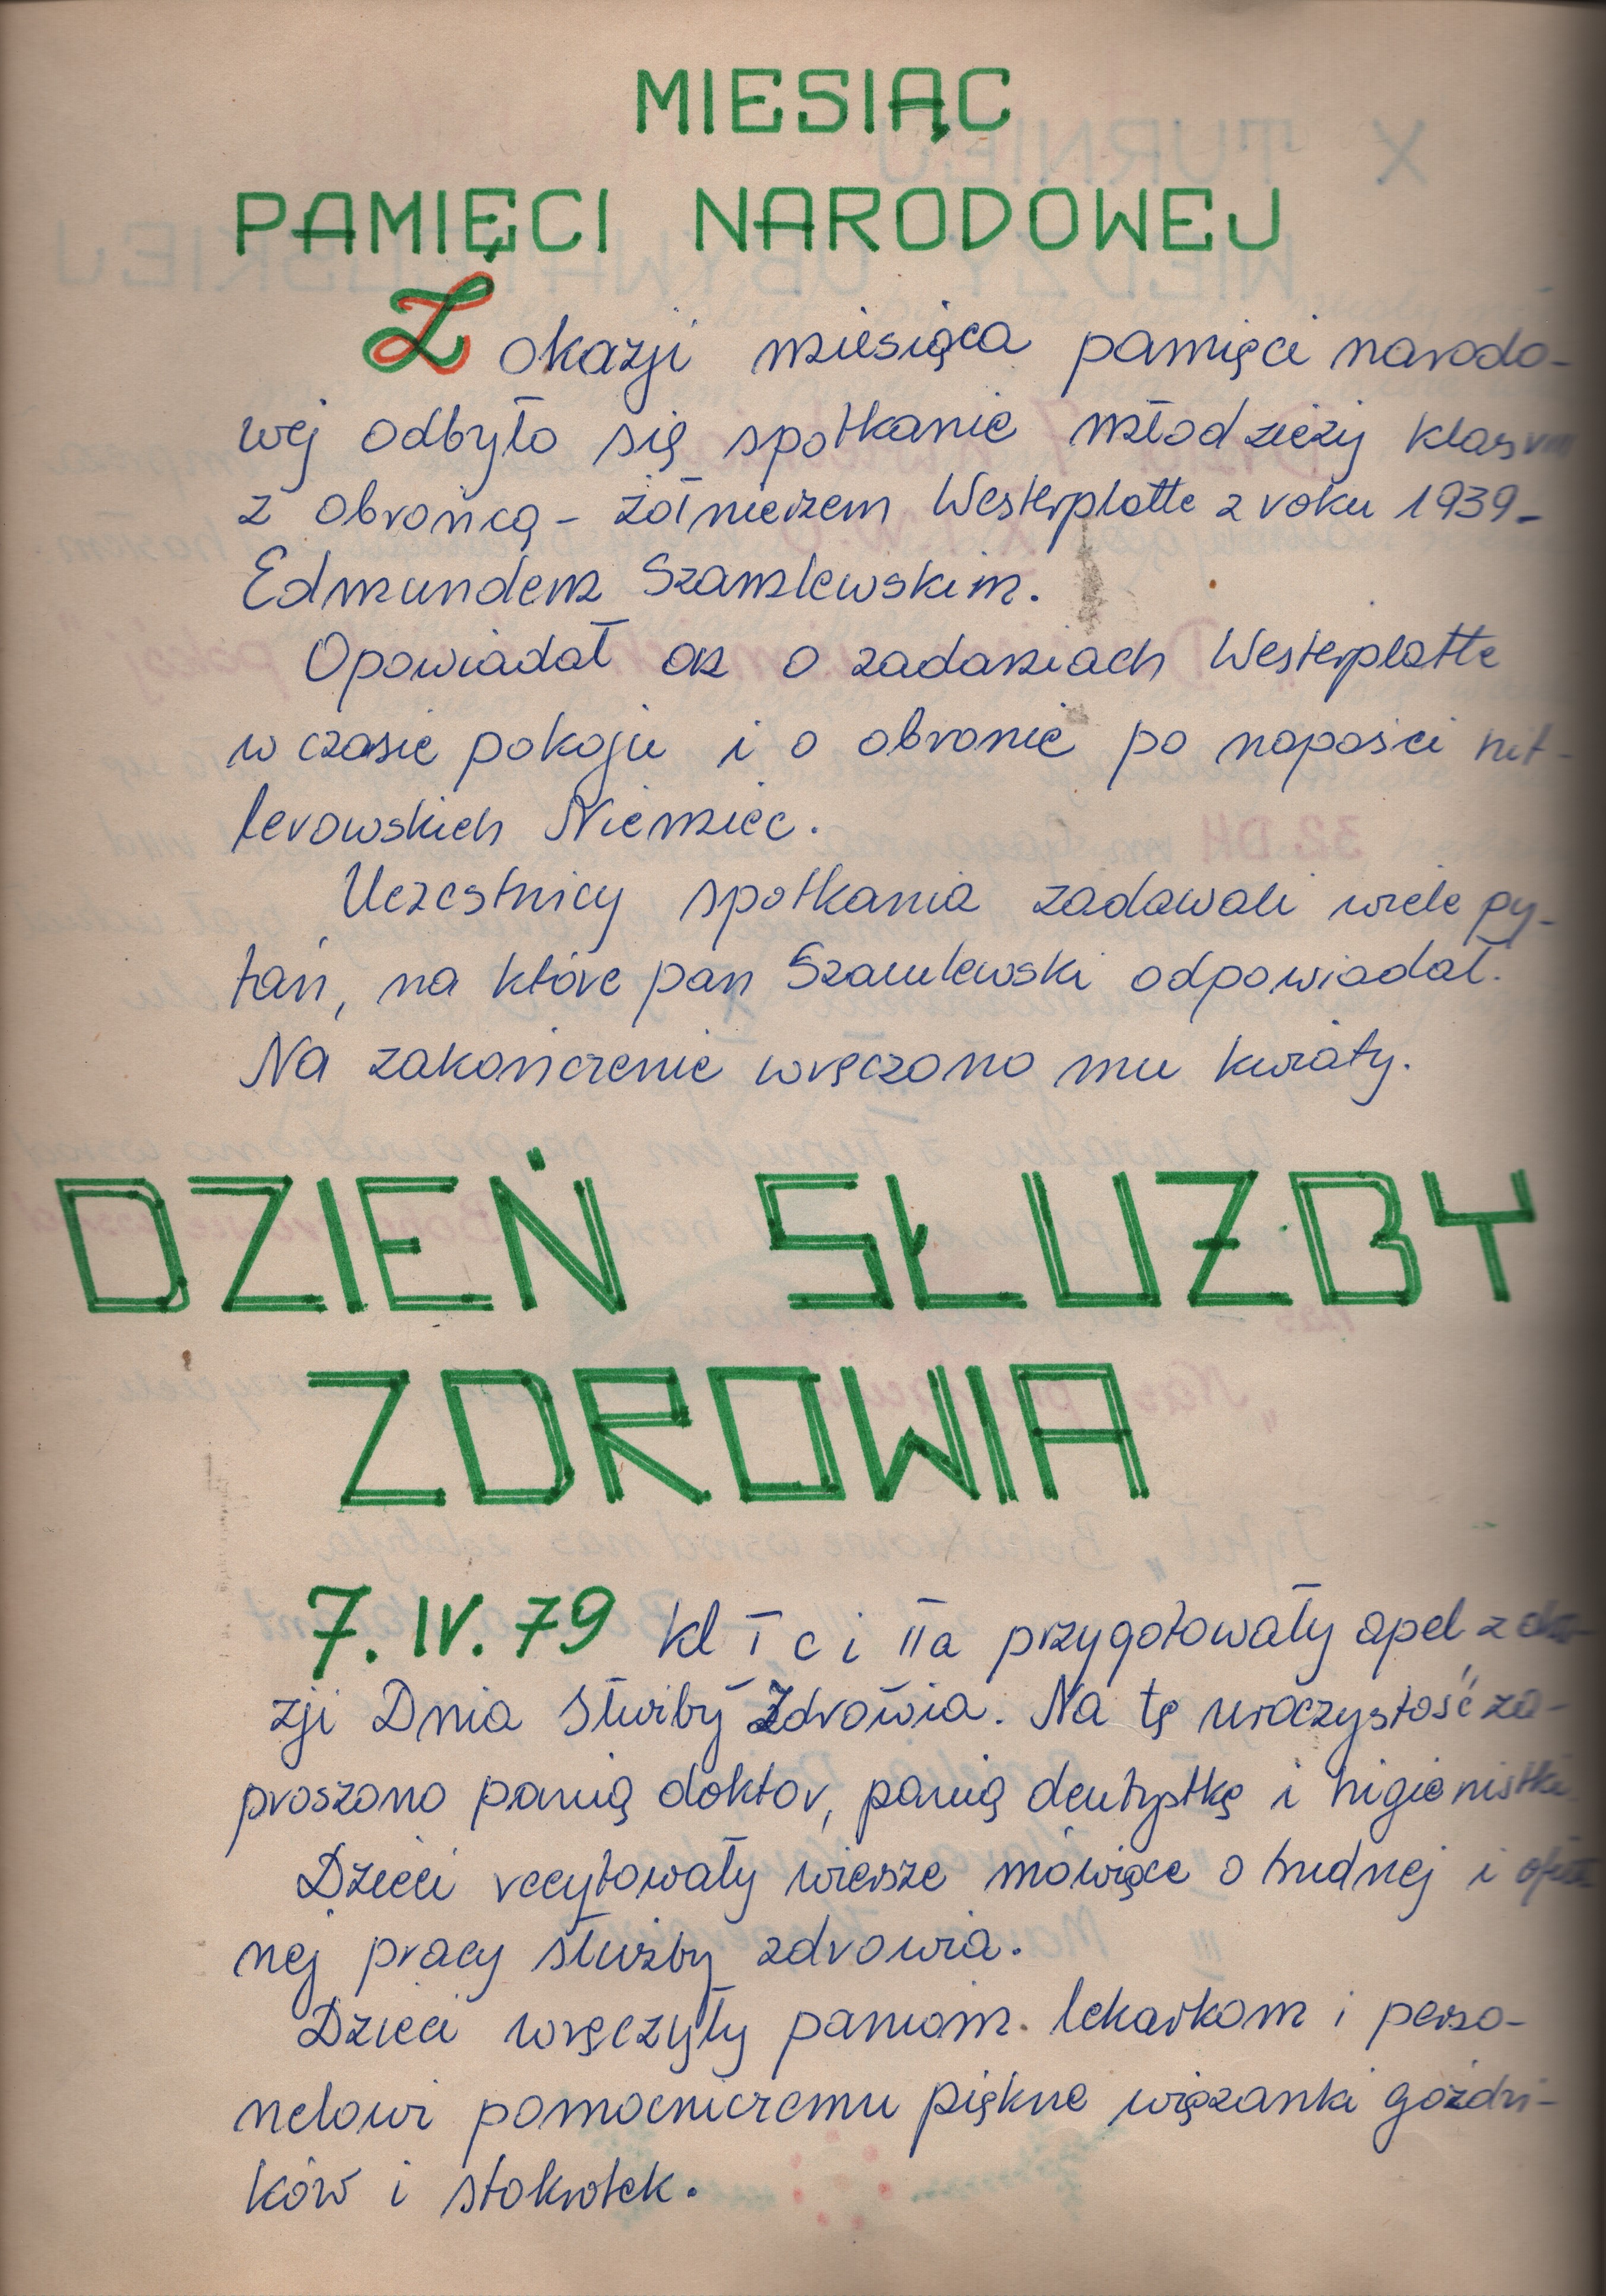 MIESIĄC
PAMIĘCI NARODOWEJ
Z okazji miesiąca pamięci narodo-
wej odbyło się spotkanie młodzieży klas VIII
z obrońcą - żołnierzem Westerplatte z roku 1939 -
Edmundem Szamlewskim.
Opowiadał on o zadaniach Westerplatte
w czasie pokoju i o obronie po napaści hit-
lerowskich Niemiec.
Uczestnicy spotkania zadawali wiele py-
tań, na które pan Szamlewski odpowiadał.
Na zakończenie wręczono mu kwiaty.
DZIEŃ SŁUŻBY
ZDROWIA
7. IV. 79 kl I c i II a przygotowały apel z oka-
zji Dnia Służby Zdrowia. Na tę uroczystość za-
proszono panią doktor, panią dentystkę i higienistkę.
Dzieci recytowały wiersze mówiące o trudnej i ofiar-
nej pracy służby zdrowia.
Dzieci wręczyły paniom lekarkom i perso-
nelowi pomocniczemu piękne wiązanki goździ-
ków i stokrotek.